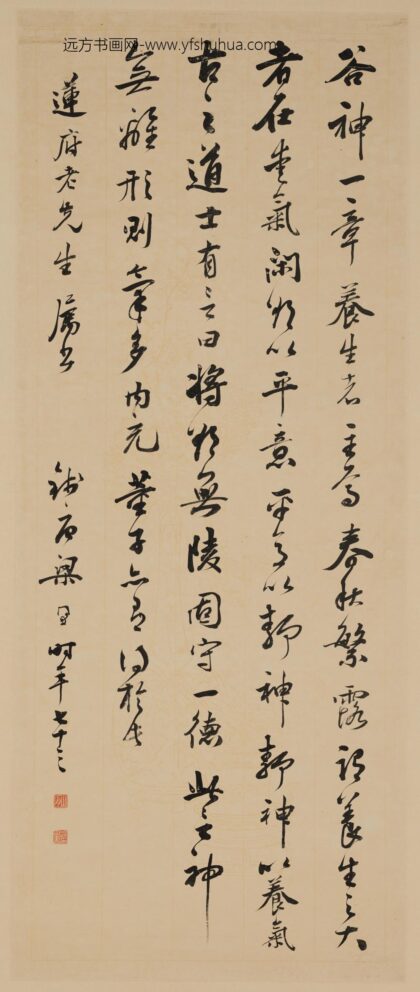 远方书画网-www.yfshuhua.com
谷神一章養生者主焉春秋繁露謂養生之大
者在愛氣閑欲以平意平意以靜神靜神以養氣
古之道士有言曰將欲無陵固守一德此言神
無離形則氣多内充董子亦有得於
蓮府老先生屬書
梁同書時年七十